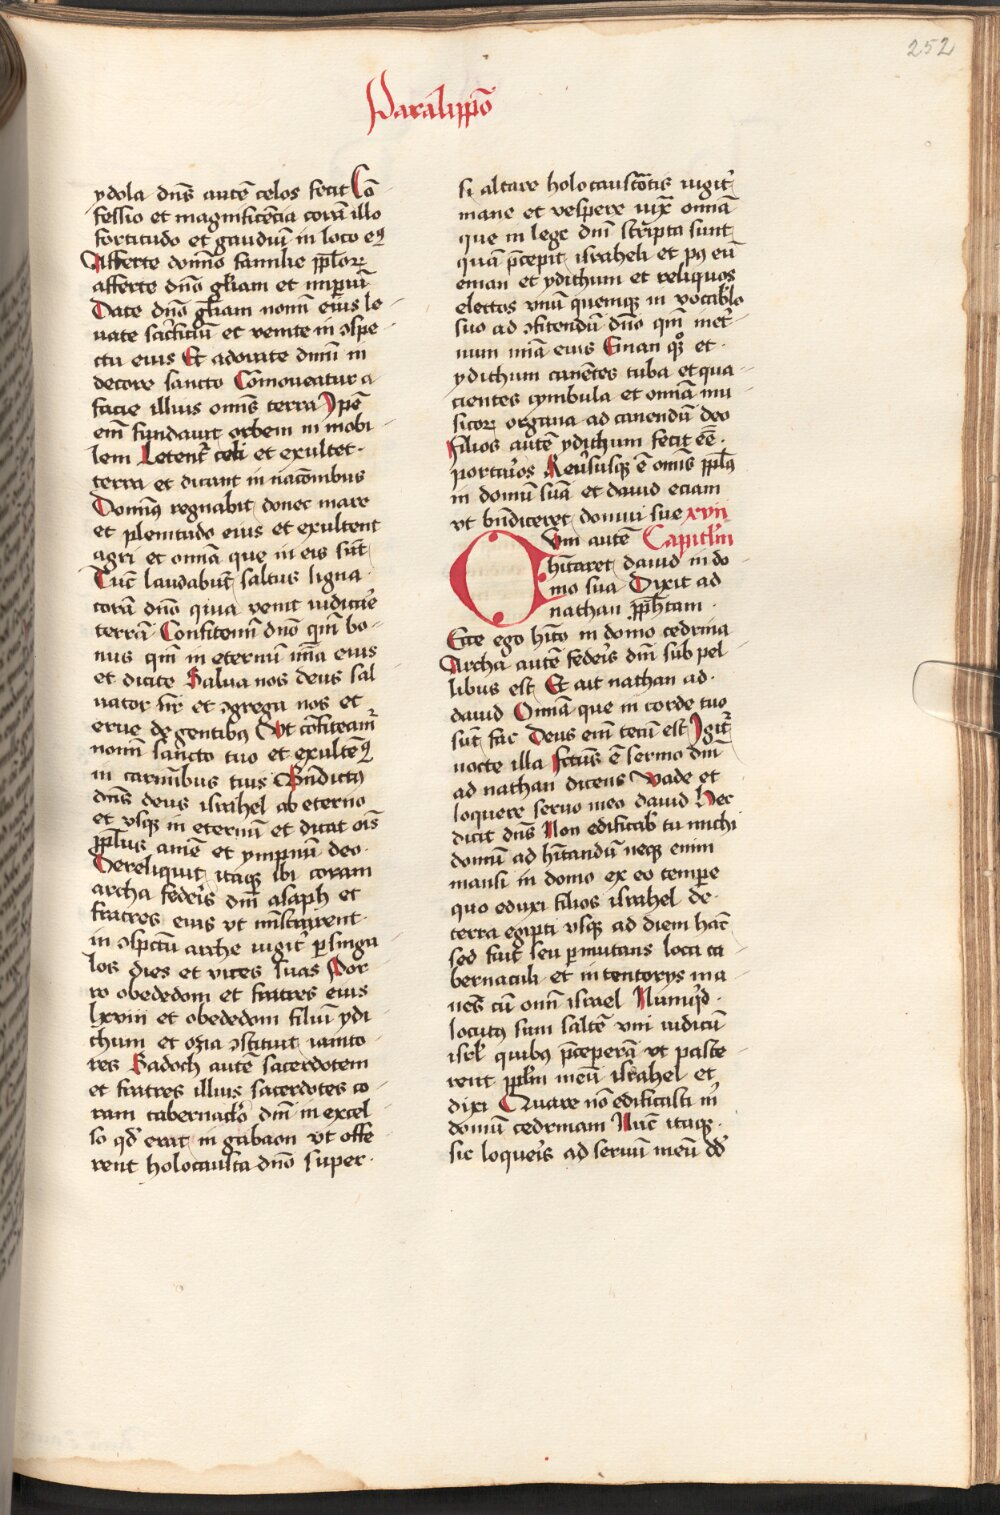 252
Paralippō
ydola dn̄s autē celos fecit Cō
fessio et magnificēcia corā illo
fortitudo et gaudiū in loco eꝰ
Afferte domīo familie ppl̄oꝝ
afferte dn̄o gl̄iam et imperiū
Date dn̄o gl̄iam nomī eius le
uate sac̄ficiū et venite in ɔspe
ctu eius Et adorate dn̄m in
decore sancto Comoueatur a
facie illius om̄s terra Ip̄e
em̄ fundauit orbem in mobi
lem Letent̄ celi et exultet
terra et dicant in nac̄onibus
Dominꝰ regnabit donec mare
et plenitudo eius et exultent
agri et omīa que in eis sūt
Tūc laudabūt saltus ligna
corā dn̄o q̇ua venit iudicār̄e
terrā Confitemī dn̄o qm̄ bo
nus qm̄ in eternū mīa eius
et dicite Salua nos deus sal
uator nr̄ et ɔgrega nos et
erue de gentibꝰ Vt cōfiteam̄
nomī sancto tuo et exultēꝰ
in carmībus tuis Bn̄dictꝰ
dn̄s deus israhel ab eterno
et vsqꝫ in eternū et dicat oīs
ppl̄us amē et ympnū deo
Dereliquit itaqꝫ ibi coram
archa federis dn̄i asaph et
fratres eius vt mīstrarent
in ɔspectu arche iugit̄ ꝑ singu
los dies et vices suas Por
ro obededom et fratres eius
lxviii et obededom filiū ydi
thum et ozia ɔstituit ianito
res Sadoch autē sacerdotem
et fratres illius sacerdotes co
ram tabernac̄lo dn̄i in excel
so qd̄ erat in gabaon vt offe
rent holocausta dn̄o super
si altare holocaustōtis iugit̄
mane et vespere iux̄ omīa
que in lege dn̄i scripta sunt
quā p̄cepit israheli et pꝰ eū
eman et ydithum et reliquos
electos vnū quemqꝫ in vocab̄lo
suo ad ɔfitendū dn̄o qm̄ inet̄
num mīa eius Eman qꝫ et
ydithum canētes tuba et qua
cientes cymbula et omīa mu
sicoꝝ organa ad canendū deo
Filios autē ydithum fecit eē
portar̄os Reuersusqꝫ ē om̄is pplꝰ
in domū suā et dauid eciam
vt bn̄diceret domui sue xvii
Vm autē Capitl̄m
hītaret dauid in do
mo sua Dixit ad
nathan pp̄hetam
Ecce ego hīto in domo cedrina
Archa autē federis dn̄i sub pel
libus est Et ait nathan ad
dauid Omīa que in corde tuo
sūt fac Deus em̄ tecū est Igit̄
nocte illa Fctūs ē sermo dn̄i
ad nathan dicens Vade et
loquere seruo meo dauid Hec
dicit dn̄s Non edificab̄ tu michi
domū ad hītandū neqꝫ enim
mansi in domo ex eo tempore
quo eduxi filios israhel de
terra egipti vsqꝫ ad diem hāc
sed fui seu ꝑmutans loca ta
bernaculi et in tentorys ma
nēs cū omī israel Numq̇d
locutꝰ sum saltē vni iudicū
isrl̄ quibꝰ p̄ceperā vt pasce
rent ppl̄m meū israhel et
dixi Quare nō edificasti m̄
domū cedrinam Nūc itaqꝫ
sic loqueris ad seruū meū dd̄